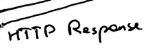 HTTP Response